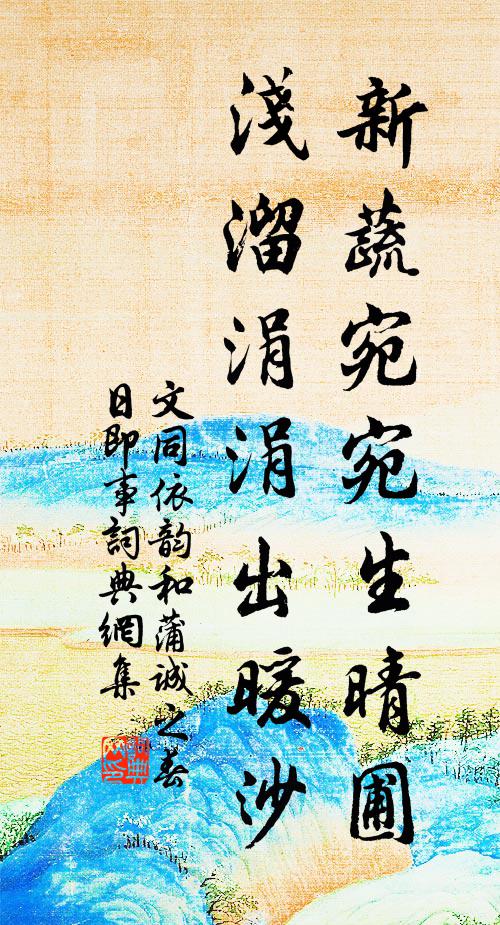 新蔬宛宛生晴圃
淺溜涓涓出暖沙
文同依韵和蒲誠之春
日即事詞典網集